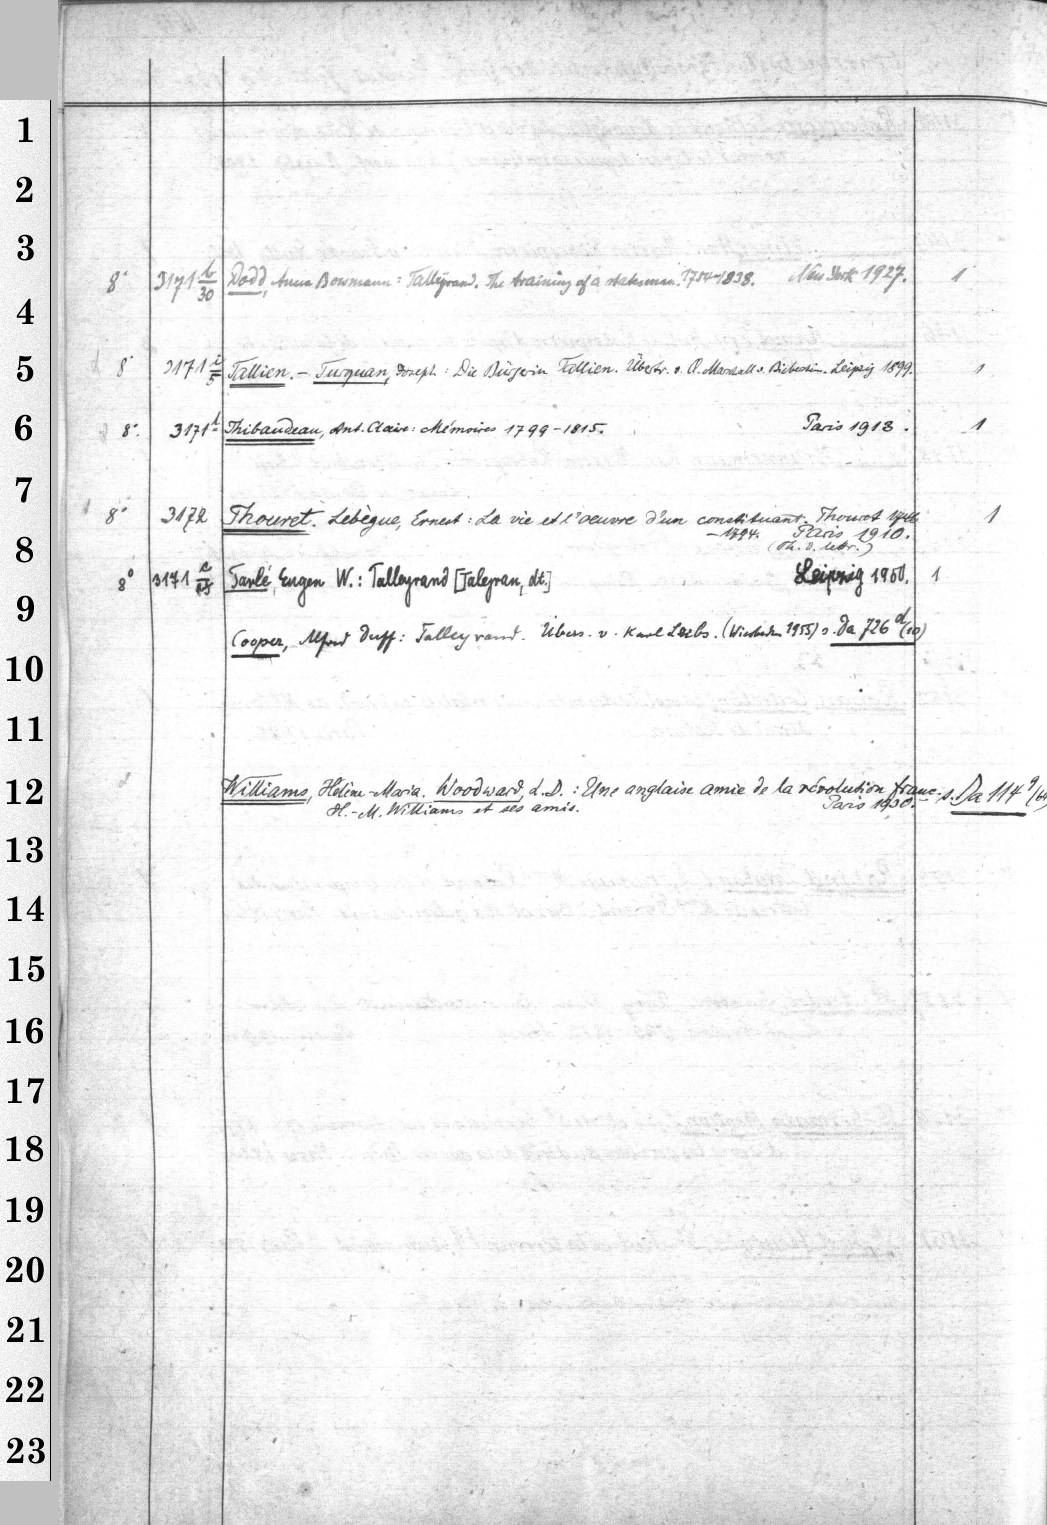 1
2
3
8° 3171 b/30 Dodd, Anna Bowmann: Talleyrand. The training of a statesman. 1754-1838. New York 1927. 1
4
5 8° 3171 i/5 Tallien. - Turquan, Joseph: Die Bürgerin Tallien. Übertr. v. O. Marschall v. Bieberstein. Leipzig 1899. 1
6 8°. 3171 Thibaudeau, Ant. Claire: Mémoires 1799-1815. Paris 1913. 1
7
8° 3172 Thouret. Lebègue, Ernest: La vie et l'oeuvre d'un constituant. Thouret 1746 1
-1794. Paris 1910.
8 (Ph. d. lettr.)
8° 3171 Tarlé, Eugen W.: Talleyrand [Talejran, dt.] Leipzig 1950. 1
9
Cooper, Alfred Duff: Talleyrand. Übers. v. Karl Lerbs. (Wiesbaden 1955) s. Da 726 d/(10)
10
11
12 Williams, Hélène-Maria. Woodward, L. D.: Une anglaise amie de la révolution franç. s. Da 114 9/(64)
H.-M. Williams et ses amis. Paris 1930.
13
14
15
16
17
18
19
20
21
22
23